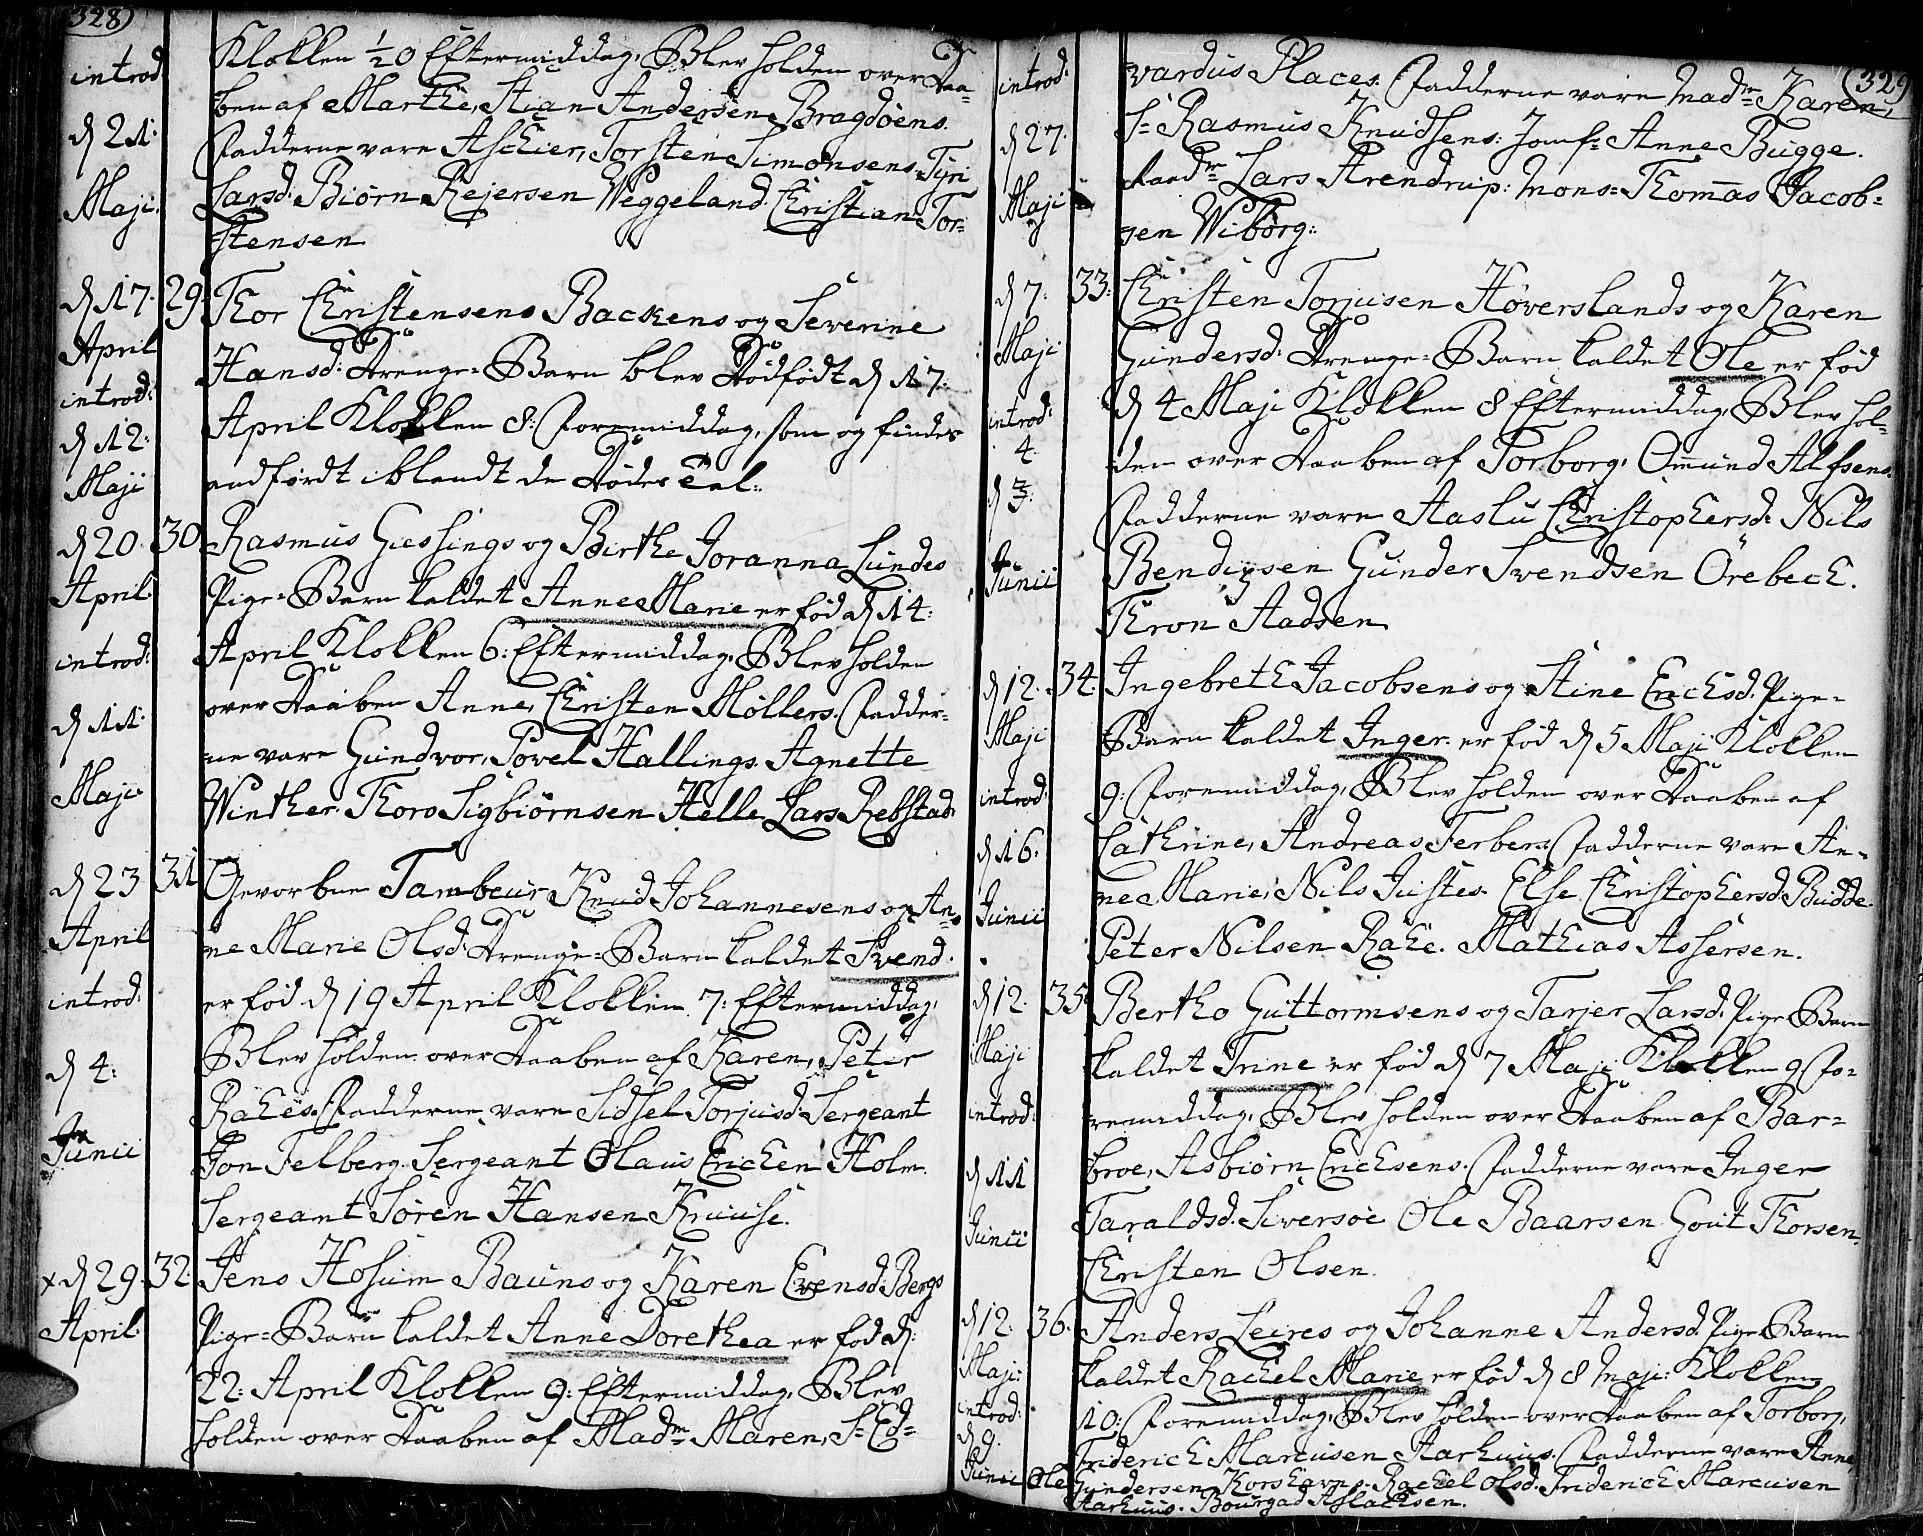 328
introd
d 21:
Maji.
Klokken ½0 Eftermiddag, Blev holden over Daa-
ben af Marthe, Stian Andersen Bragdöens.
Fadderne vare Aschier, Torsten Simonsens. Tÿri
Larsd. Biörn Rejersen Weggeland. Christian Tor-
stensen
d 17. 29.
April
introd:
d 12:
Maji
Thor Christensens Backens og Severine
Hansd: Drenge-Barn blev Dödfödt d 17.
April Klokken 8: Formiddag, som og findes
andfördt iblandt de Dödes Tal.
d 20. 30
April.
introd:
d 11.
Maji
Rasmus Giessings og Birthe Joranna Lundes
Pige-Barn kaldet Anne Marie er föd d 14:
April Klokken 6: Eftermiddag, Blev holden
over Daaben Anne, Christen Möllers. Fadder-
ne vare Gundvor, Povel Hallings. Agnette
Winther. Thoro Sigbiörnsen Helle Lars Rebstad.
d 23 31
April
introd:
d 4:
Junii
Gevorbne Tambeur Knud Johannesens og An-
ne Marie Olsd: Drenge-Barn kaldet Svend.
er föd d 19 April Klokken 7: Eftermiddag,
Blev holden over Daaben af Karen, Peter
Rahes. Fadderne vare Sidsel Torjusd. Sergeant
Jon Felberg. Sergeant Olaus Erichen Holm.
Sergeant Sören Hansen Kruuse.
x d 29. 32
April.
Jens Hosum Bauns og Karen Evensd: Bergs
Pige-Barn kaldet Anne Dorethea er föd d:
22: April Klokken 9: Eftermiddag, Blev
holden over Daaben af Madm Maren, Sr Ed-
329
introd:
d 27.
Maji
vardus Places. Fadderne vare Madm Karen,
Sr Rasmus Knudsens: Jomfr Anne Bugge.
Lars Arendrup: Mons: Thomas Jacob-
sen Wiborg:
d 7. 33:
Maji
introd:
4.
d 3.
Junii
Christen Torjusen Höverslands og Karen
Gundersd. Drenge-Barn kaldet Ole er föd
d 4 Maji Klokken 8 Eftermiddag, Blev hol-
den over Daaben af Torborg, Omund Alfsens.
Fadderne vare Aaslu Christophersd: Nils
Bendixsen Gunder Svendsen Örebech.
Thron Aadsen.
d 12. 34.
Maji
introd:
d 16.
Junii
Ingebreth Jacobsens og Stine Erichsd. Pige-
Barn kaldet Inger. er föd d 5 Maji Klokken
9: Formiddag, Blev holden over Daaben af
Cathrine, Andreas Ferbers. Fadderne vare An-
ne Marie, Nils Justes. Else Christophersd. Budde.
Peter Nilsen Rahe. Mathias Assersen.
d 12. 35.
Maji
introd:
d 11
Junii
Bertho Guttormsens og Tarjer Larsd. Pige Barn
kaldet Trine er föd d 7 Maji Klokken 9 For-
remiddag, Blev holden over Daaben af Bar-
broe, Asbiörn Erichsens. Fadderne vare Inger
Taraldsd. Siversöe Ole Baarsen. Gout Thorsen.
Christen Olsen.
d 12. 36.
Maji:
introd:
d 9.
Junii
Anders Leires og Johanne Andersd. Pige Barn
kaldet Rachel Marie er föd d 8 Maji: Klokken
10: Formiddag, Blev holden over Daaben af Torborg,
Friderich Marcusen Aarhuus. Fadderne vare Anne,
Ole Gundersen Korshavns. Rachel Olsd. Friderich Marcusen
Aarhuus. Bourgad Aslachsen.